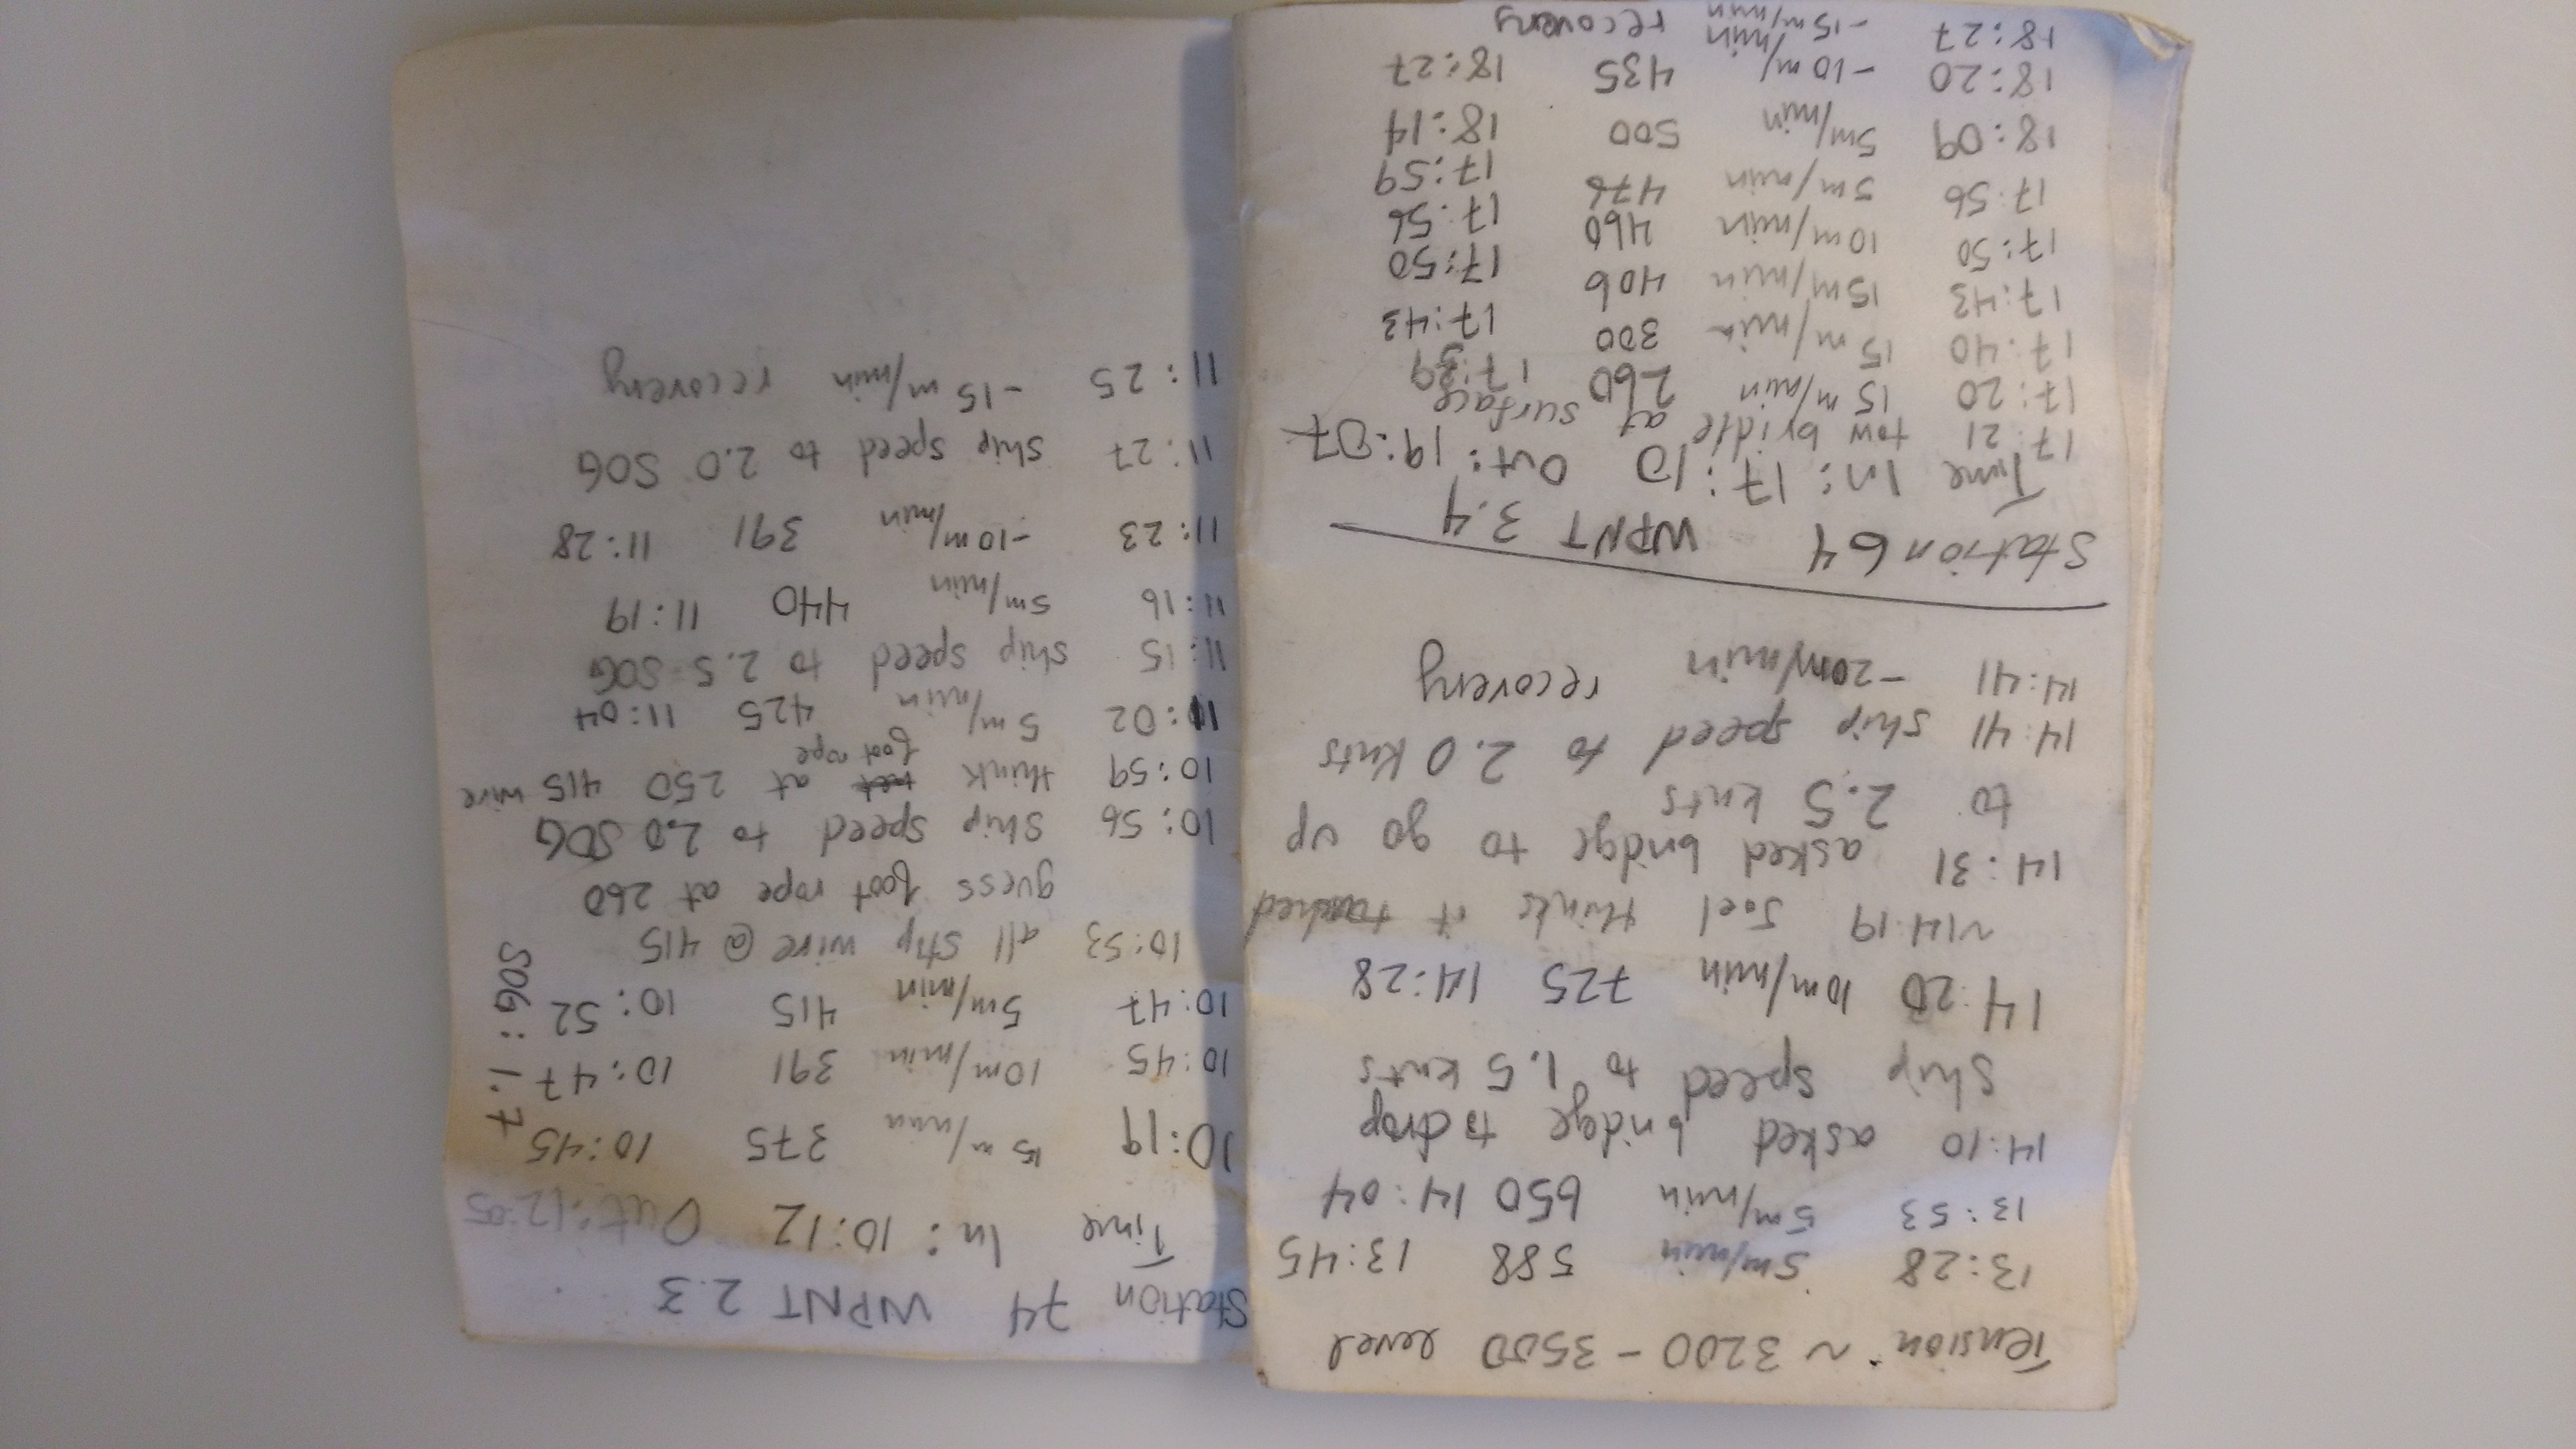 Tension ~ 3200 - 3500 level
13:28 5m/min 588 13:45
13:53 5m/min 650 14:04
14:10 asked bridge to drop
ship speed to 1.5 knts
14:20 10m/min 725 14:28
~14:19 Joel thinks it touched
14:31 asked bridge to go up
to 2.5 knts
14:41 ship speed to 2.0 Knts
14:41 -20m/min recovery
Station 64 WPNT 3.4
Time In: 17:10 Out: 19:07
17:21 tow bridle at surface
17:20 15 m/min 260 17:39
17:40 15 m/min 300 17:43
17:43 15m/min 406 17:50
17:50 10m/min 460 17:56
17:56 5m/min 476 17:59
18:09 5m/min 500 18:14
18:20 -10 m/min 435 18:27
18:27 -15m/min recovery
Station 74 WPNT 2.3
Time In: 10:12 Out: 12:05
10:19 15 m/min 375 10:45
10:45 10m/min 391 10:47
10:47 5m/min 415 10:52
SOG: 1.7
10:53 all stop wire @ 415
guess foot rope at 260
10:56 ship speed to 2.0 SOG
10:59 think net at 250 415 wire
foot rope
11:02 5 m/min 425 11:04
11:15 ship speed to 2.5 SOG
11:16 5m/min 440 11:19
11:23 -10 m/min 391 11:28
11:27 ship speed to 2.0 SOG
11:25 -15 m/min recovery